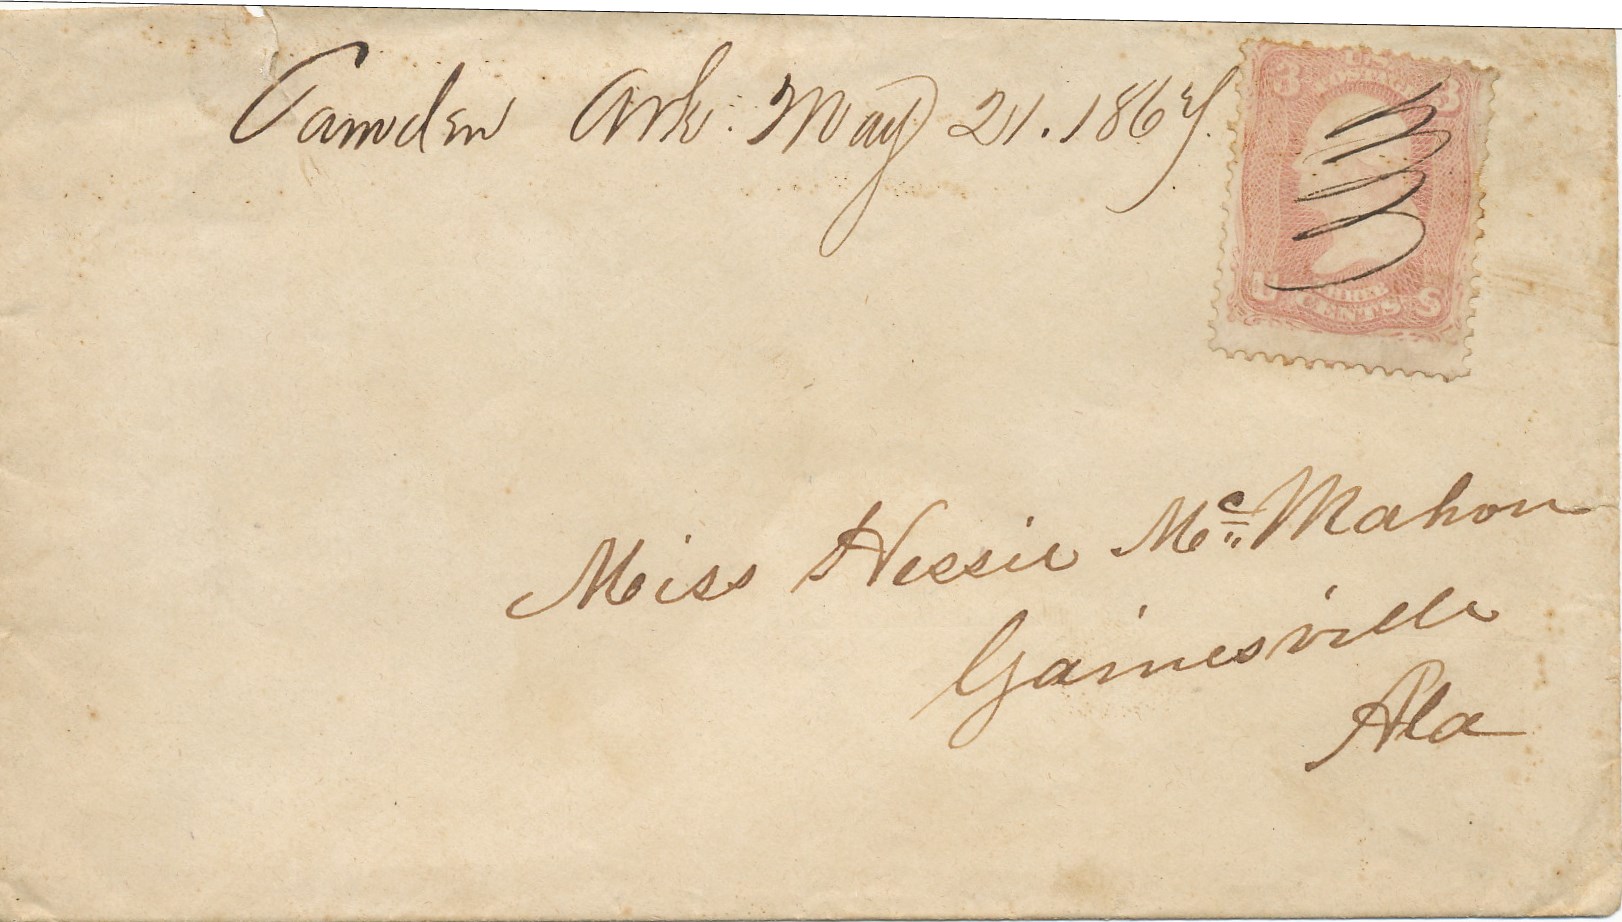 Camden Ark. May 21. 1867.
3 U.S. 3
POSTAGE
U THREE S
CENTS
Miss Hessie Mc Mahon
Gainesville
Ala